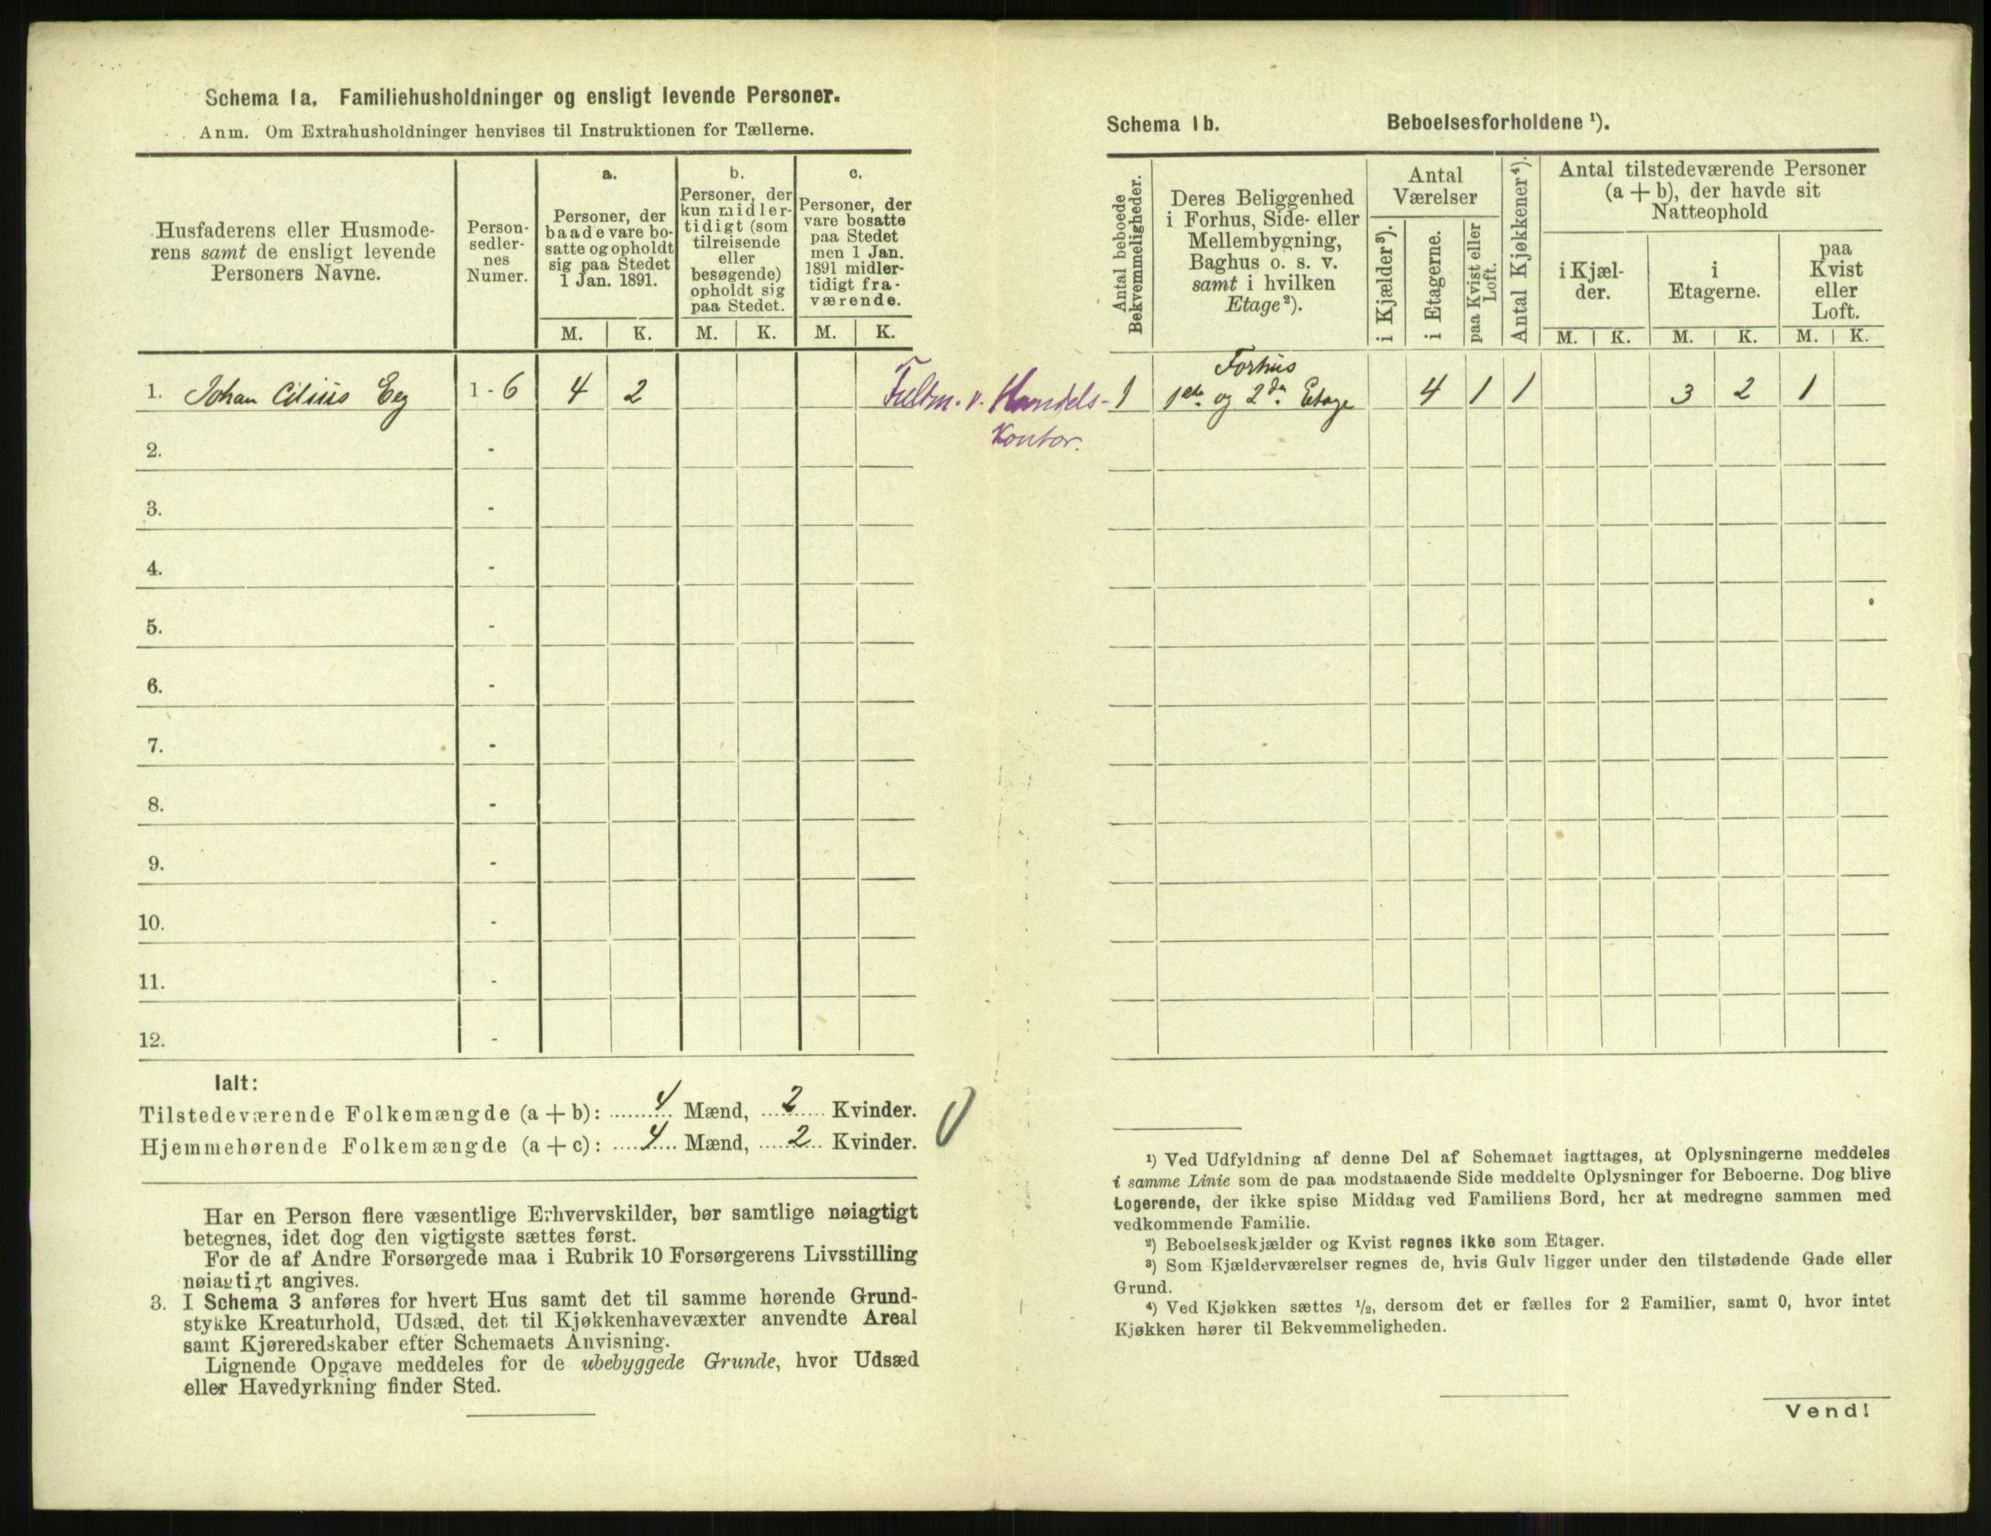 Schema 1a. Familiehusholdninger og ensligt levende Personer.
Anm. Om Extrahusholdninger henvises til Instruktionen for Tællerne.
Husfaderens eller Husmode-
rens samt de ensligt levende
Personers Navne.
Person-
sedler-
nes
Numer.
a.
Personer, der
baade vare bo-
satte og opholdt
sig paa Stedet
1 Jan. 1891.
b.
Personer, der
kun midler-
tidigt (som
tilreisende
eller
besøgende)
opholdt sig
paa Stedet.
c.
Personer, der
vare bosatte
paa Stedet
men 1 Jan.
1891 midler-
tidigt fra-
værende.
M. K. M. K. M. K.
1. Johan Cilius Eeg 1 - 6 4 2
2. -
3. -
4. -
5. -
6. -
7. -
8. -
9. -
10. -
11. -
12. -
Ialt:
Tilstedeværende Folkemængde (a + b): 4 Mænd, 2 Kvinder.
Hjemmehørende Folkemængde (a + c): 4 Mænd, 2 Kvinder.
Har en Person flere væsentlige Erhvervskilder, bør samtlige nøiagtigt
betegnes, idet dog den vigtigste sættes først.
For de af Andre Forsørgede maa i Rubrik 10 Forsørgerens Livsstilling
nøiagtigt angives.
3. I Schema 3 anføres for hvert Hus samt det til samme hørende Grund-
stykke Kreaturhold, Udsæd, det til Kjøkkenhavevæxter anvendte Areal
samt Kjøreredskaber efter Schemaets Anvisning.
Lignende Opgave meddeles for de ubebyggede Grunde, hvor Udsæd
eller Havedyrkning finder Sted.
Fultm. v. Handels-
Kontor.
Schema 1b. Beboelsesforholdene ¹).
Antal beboede
Bekvemmeligheder.
Deres Beliggenhed
i Forhus, Side- eller
Mellembygning,
Baghus o. s. v.
samt i hvilken
Etage²).
Antal
Værelser
i Kjælder³).
i Etagerne.
paa Kvist eller
Loft.
Antal Kjøkkener⁴).
Antal tilstedeværende Personer
(a + b), der havde sit
Natteophold
i Kjæl-
der.
i
Etagerne.
paa
Kvist
eller
Loft.
M. K. M. K. M. K.
Forhus
1 1ste og 2den Etage 4 1 1 3 2 1
¹) Ved Udfyldning af denne Del af Schemaet iagttages, at Oplysningerne meddeles
i samme Linie som de paa modstaaende Side meddelte Oplysninger for Beboerne. Dog blive
Logerende, der ikke spise Middag ved Familiens Bord, her at medregne sammen med
vedkommende Familie.
²) Beboelseskjælder og Kvist regnes ikke som Etager.
³) Som Kjælderværelser regnes de, hvis Gulv ligger under den tilstødende Gade eller
Grund.
⁴) Ved Kjøkken sættes ½, dersom det er fælles for 2 Familier, samt 0, hvor intet
Kjøkken hører til Bekvemmeligheden.
Vend!